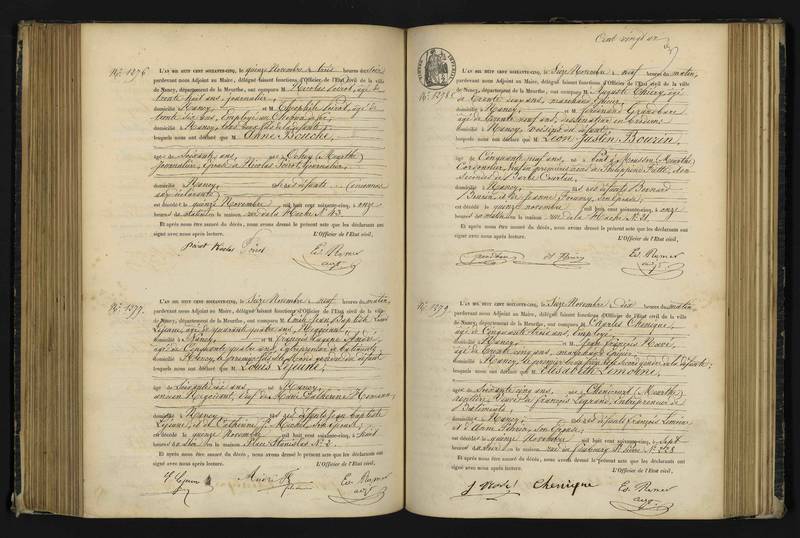 N° 1276
L'AN MIL HUIT CENT SOIXANTE-CINQ, le quinze Novembre à trois heures du soir
pardevant nous Adjoint au Maire, délégué faisant fonctions d'Officier de l'Etat civil de la ville
de Nancy, département de la Meurthe, ont comparu M. Nicolas Poirot, âgé de
trente huit ans, journalier,
domicilié à Nancy, et M. Théophile Poirot, âgé de
trente six ans, Employé au Chemin de fer,
domicilié à Nancy, tous deux fils de la défunte;
lesquels nous ont déclaré que M. Anne Bouché,
âgée de Soixante ans, née à (Meurthe)
journalière, Epouse de Nicolas Poirot, Journalier,
domiciliée à Nancy,
est décédée le quinze Novembre mil huit cent soixante-cinq, à onze
heures du matin en la maison rue de la Hache N° 43.
Et après nous être assuré du décès, nous avons dressé le présent acte que les déclarants ont
signé avec nous après lecture. L'Officier de l'Etat civil,
Poirot Nicolas Poirot Ed. Rumer
adjt
N° 1277.
L'AN MIL HUIT CENT SOIXANTE-CINQ, le Seize Novembre à neuf heures du matin,
pardevant nous Adjoint au Maire, délégué faisant fonctions d'Officier de l'Etat civil de la ville
de Nancy, département de la Meurthe, ont comparu M. Emile Jean Baptiste Louis
Lejeune, âgé de quarante quatre ans, Négociant,
domicilié à Nancy, et M. François Eugène André
âgé de Cinquante quatre ans, Entrepreneur de bâtiments,
domicilié à Nancy, le premier fils, le second gendre du défunt
lesquels nous ont déclaré que M. Louis Lejeune,
âgé de Soixante dix ans, né à Nancy,
ancien Négociant, Veuf de Anne Catherine
domicilié à Nancy, fils des défunts Jean Baptiste
Lejeune, et de Catherine Michel, son épouse,
est décédé le quinze Novembre mil huit cent soixante-cinq, à huit
heures du soir en la maison Place Stanislas N° 2.
Et après nous être assuré du décès, nous avons dressé le présent acte que les déclarants ont
signé avec nous après lecture. L'Officier de l'Etat civil,
Lejeune André Ed. Rumer
adjt
Cent vingt un
N° 1278
L'AN MIL HUIT CENT SOIXANTE-CINQ, le Seize Novembre à neuf heures du matin,
pardevant nous Adjoint au Maire, délégué faisant fonctions d'Officier de l'Etat civil de la ville
de Nancy, département de la Meurthe, ont comparu M. Auguste Thiéry, âgé
de Trente cinq ans, marchand Epicier,
domicilié à Nancy, et M.
âgé de Trente neuf ans,
domicilié à Nancy, voisins du défunt
lesquels nous ont déclaré que M. Léon Justin Bourin,
âgé de Cinquante neuf ans, né à Pont à Mousson (Meurthe)
Cordonnier, Veuf en premières noces de Philippine
secondes de Barbe
domicilié à Nancy, fils des défunts Bernard
Bourin,
est décédé le quinze novembre mil huit cent soixante-cinq, à onze
heures du matin en la maison rue de la Hache N° 21.
Et après nous être assuré du décès, nous avons dressé le présent acte que les déclarants ont
signé avec nous après lecture. L'Officier de l'Etat civil,
A Thiéry Ed. Rumer
adjt
N° 1279
L'AN MIL HUIT CENT SOIXANTE-CINQ, le Seize Novembre à dix heures du matin,
pardevant nous Adjoint au Maire, délégué faisant fonctions d'Officier de l'Etat civil de la ville
de Nancy, département de la Meurthe, ont comparu M. Charles Chenique,
âgé de Cinquante trois ans, Employé,
domicilié à Nancy, et M. Jean François
âgé de Trente cinq ans, marchand Epicier,
domicilié à Nancy, le premier beau-frère, le second gendre de la défunte;
lesquels nous ont déclaré que M. Elisabeth Lemoine,
âgée de Soixante cinq ans, née à Chenicourt (Meurthe)
rentière, Veuve de François Legrand, Entrepreneur de
Bâtiments,
domiciliée à Nancy, fille des défunts François Lemoine
et d'Anne son Epouse,
est décédée le quinze Novembre mil huit cent soixante-cinq, à sept
heures du soir en la maison rue du faubourg St Pierre N°
Et après nous être assuré du décès, nous avons dressé le présent acte que les déclarants ont
signé avec nous après lecture. L'Officier de l'Etat civil,
Chenique Ed. Rumer
adjt